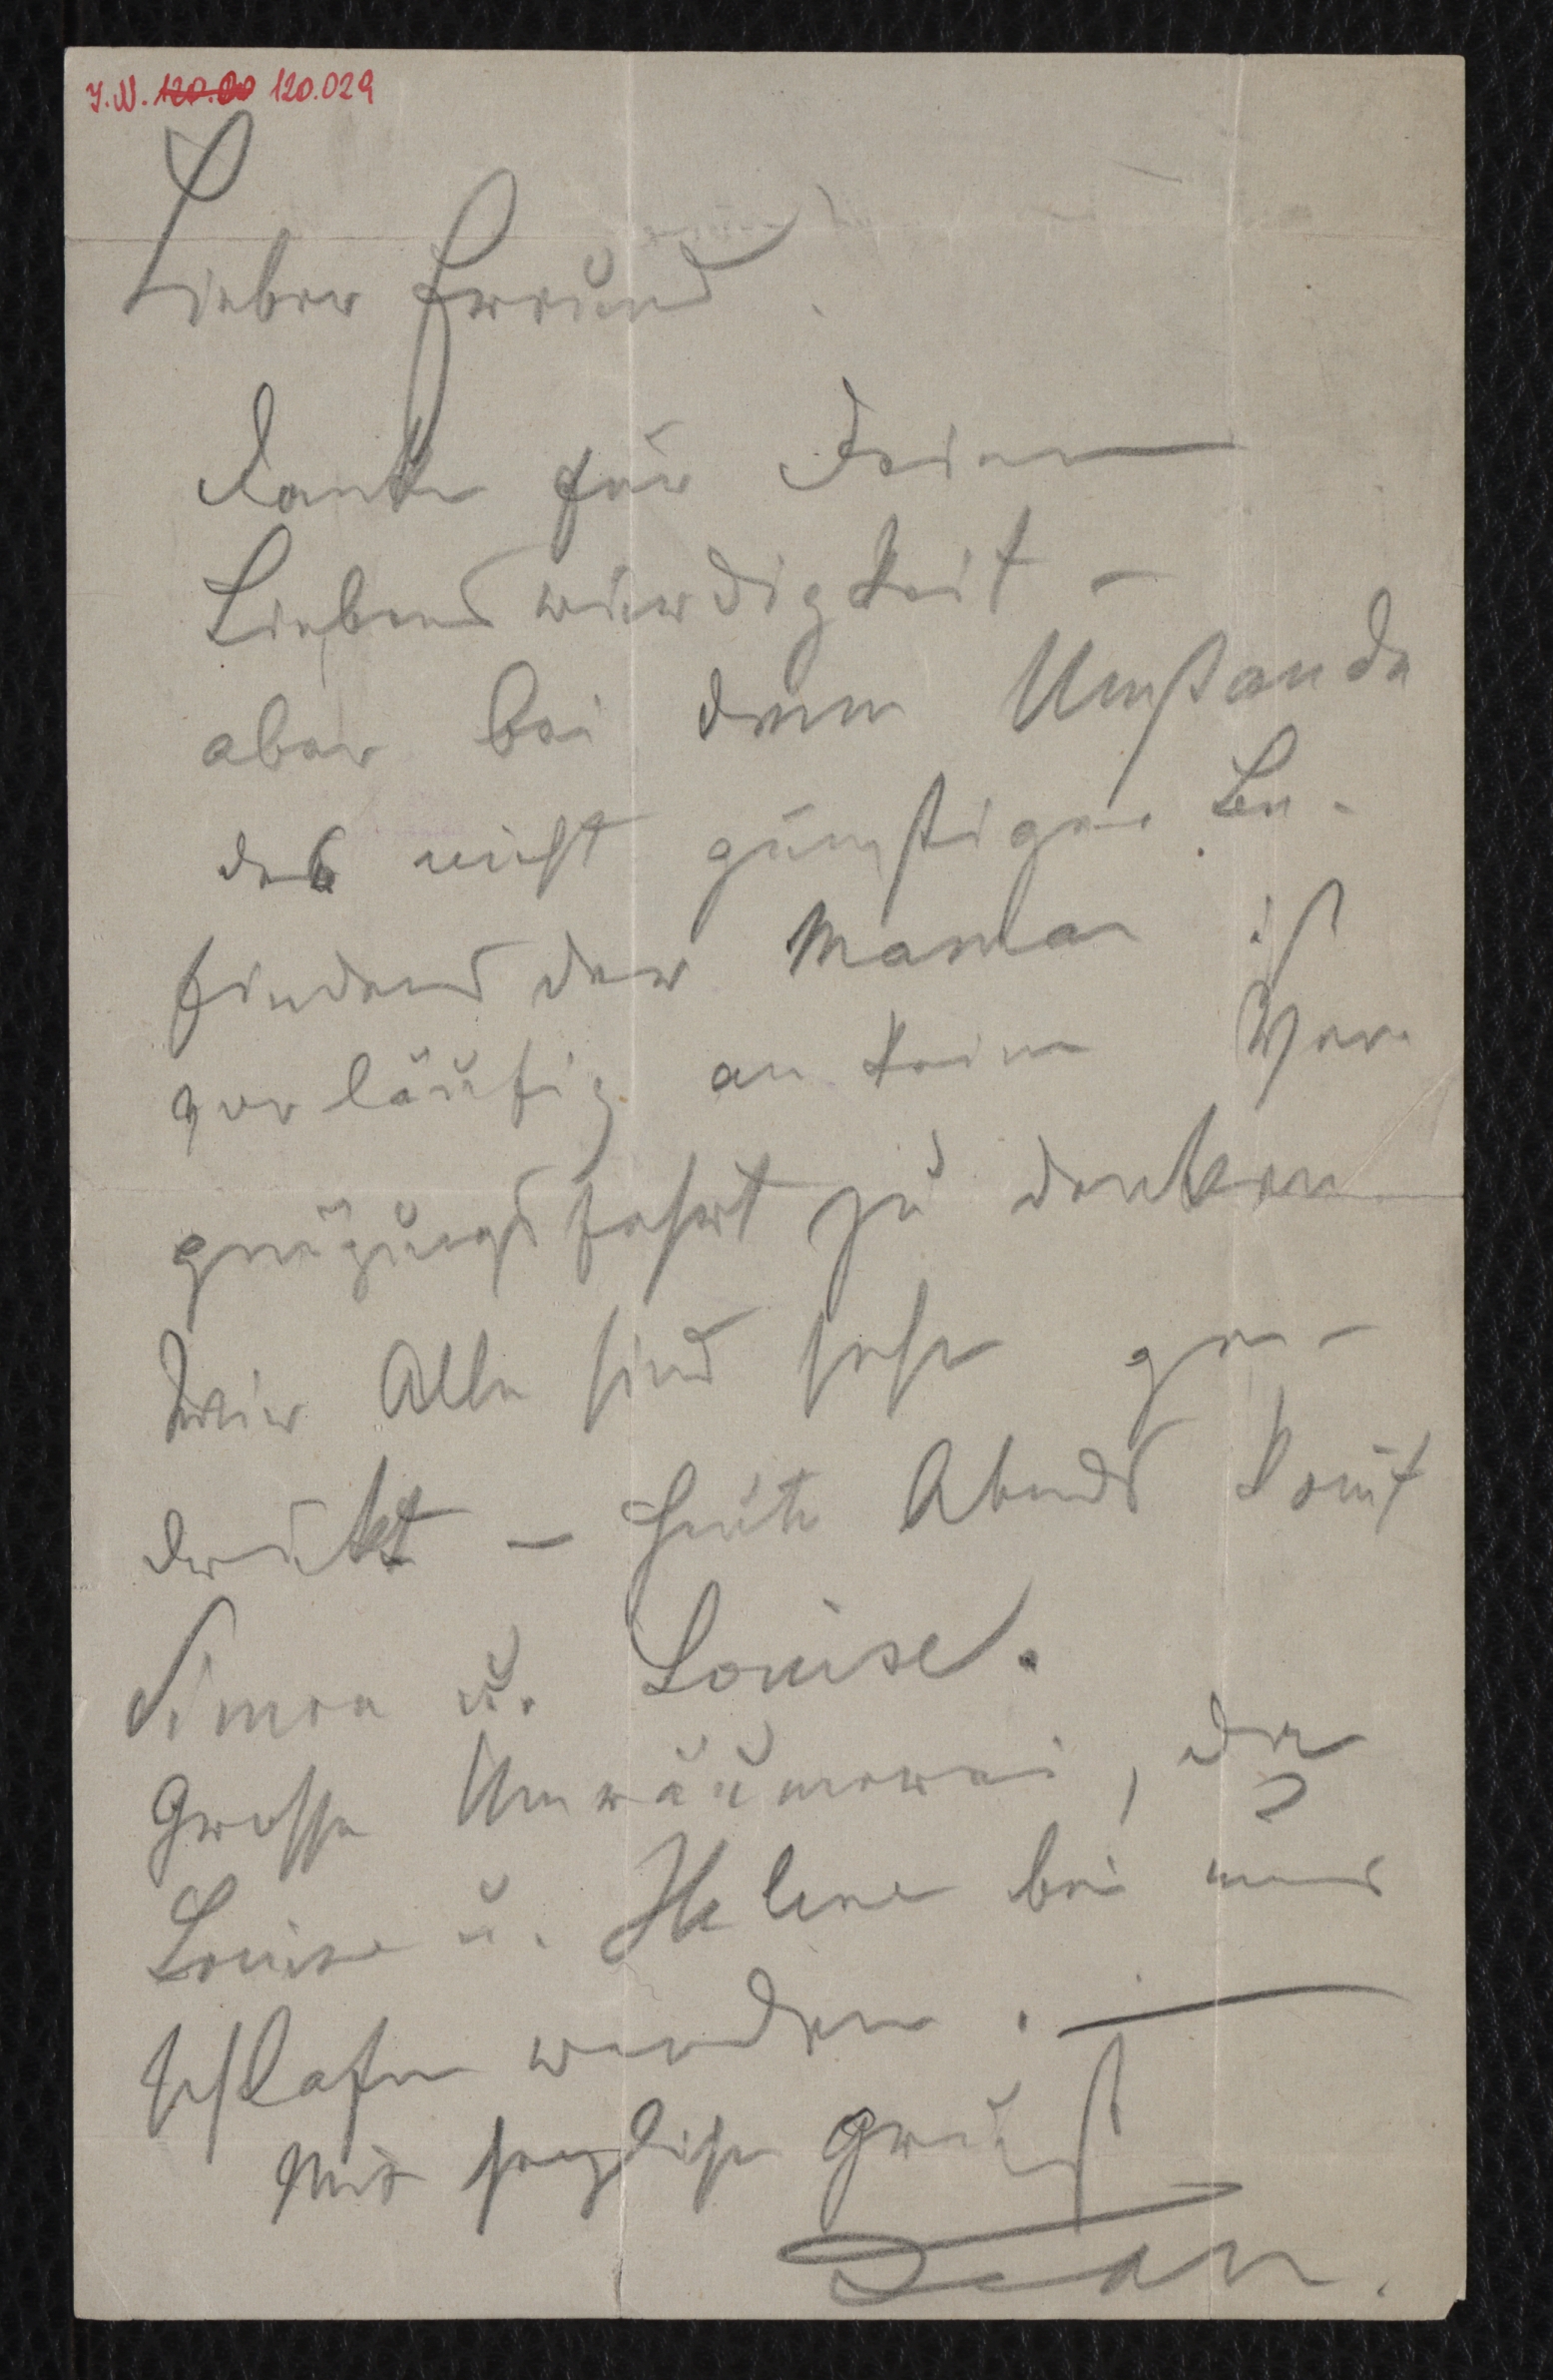 J.N. 120.029
Lieber Freund
Danke für Deine
Liebenswürdigkeit –
aber bei dem Umstande
des nicht günstigen Be-
findens der Mama ist
vorläufig an keine Ver-
gnügungsfahrt zu denken
Wir Alle sind sehr ge-
drükt – Heute Abends komt
Simon u. Louise.
Grosse Umräumerei, da
Louise u. Helene bei uns
schlafen werden. —
Mit herzlichen Gruß
Jean.